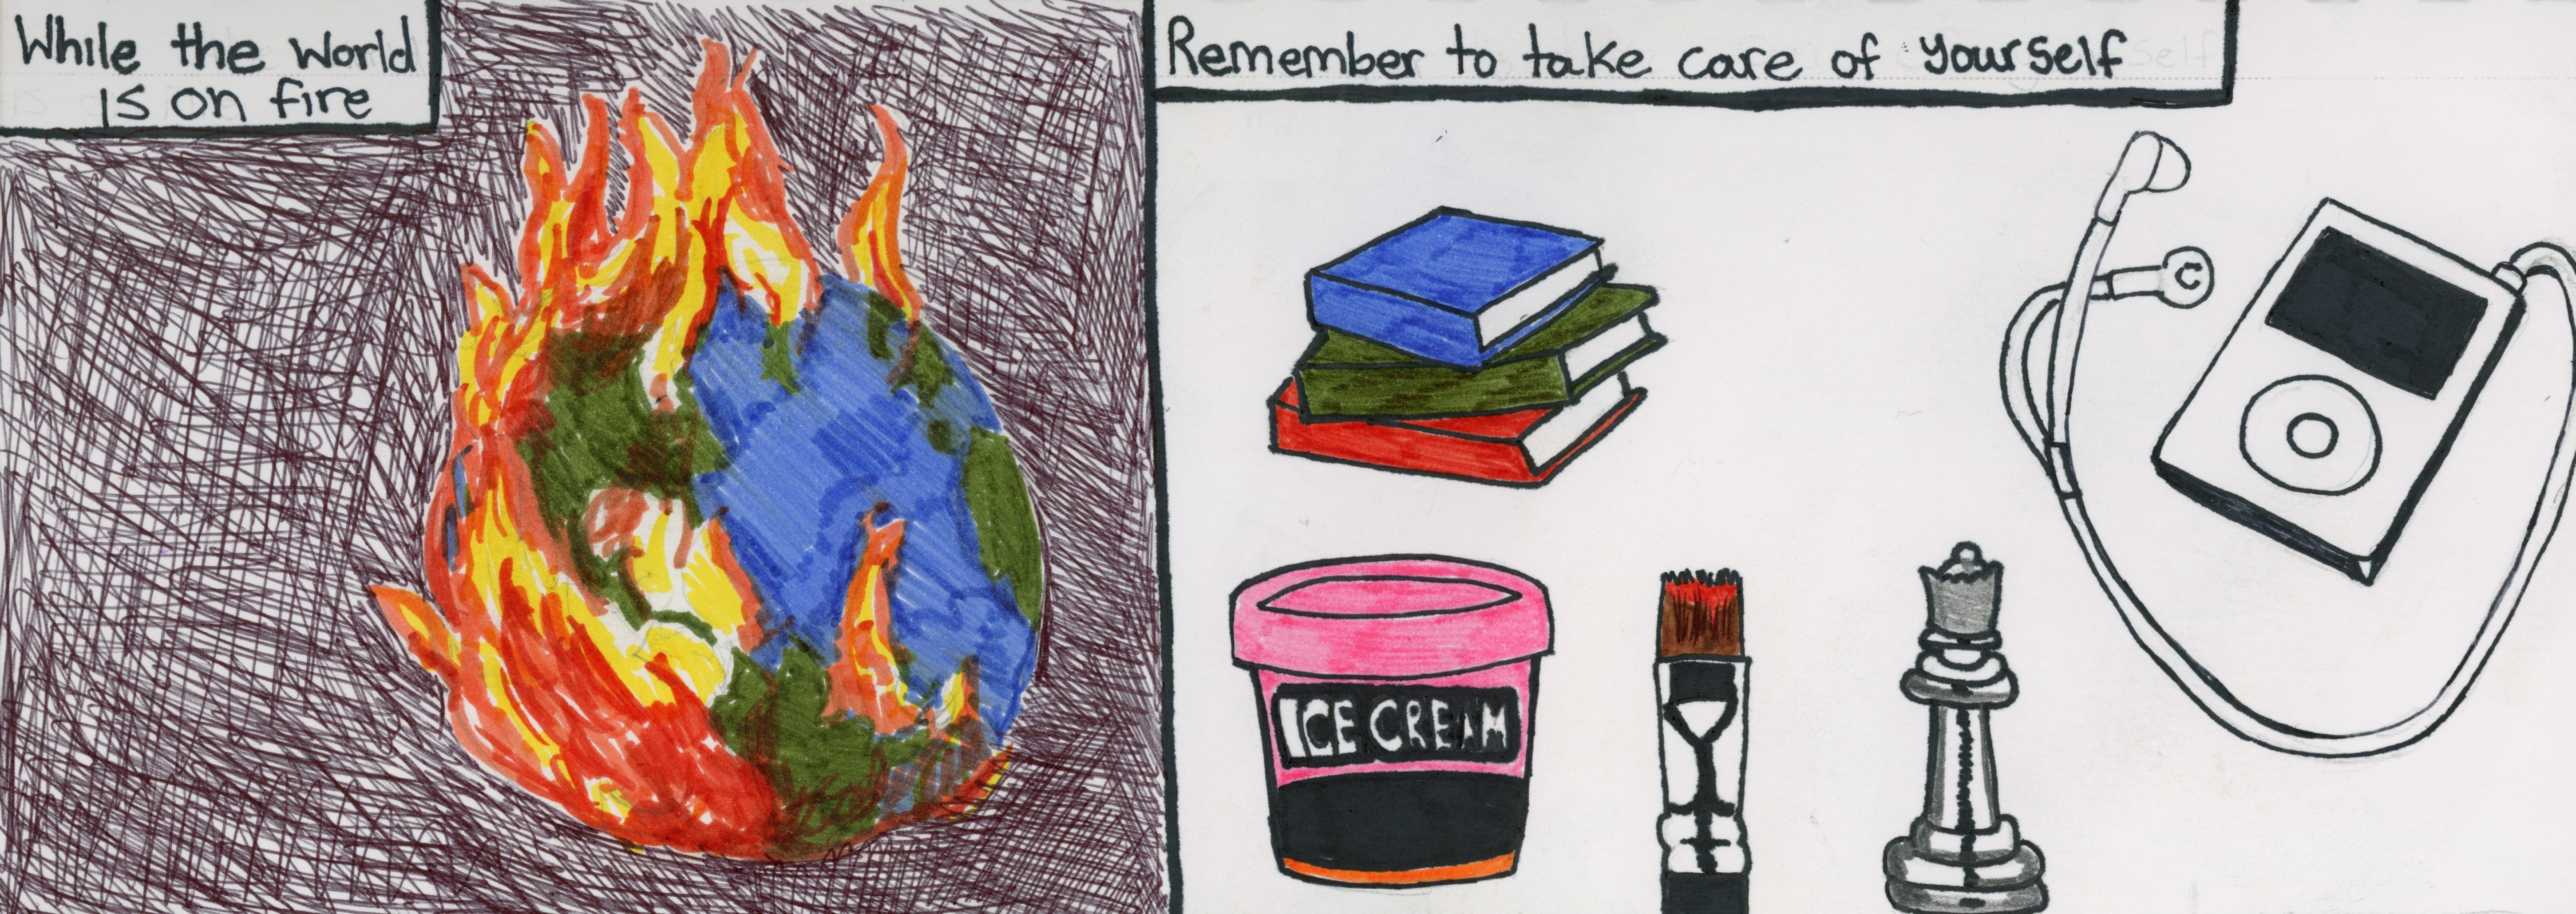 While the world
is on fire
Remember to take care of yourself
ICE CREAM